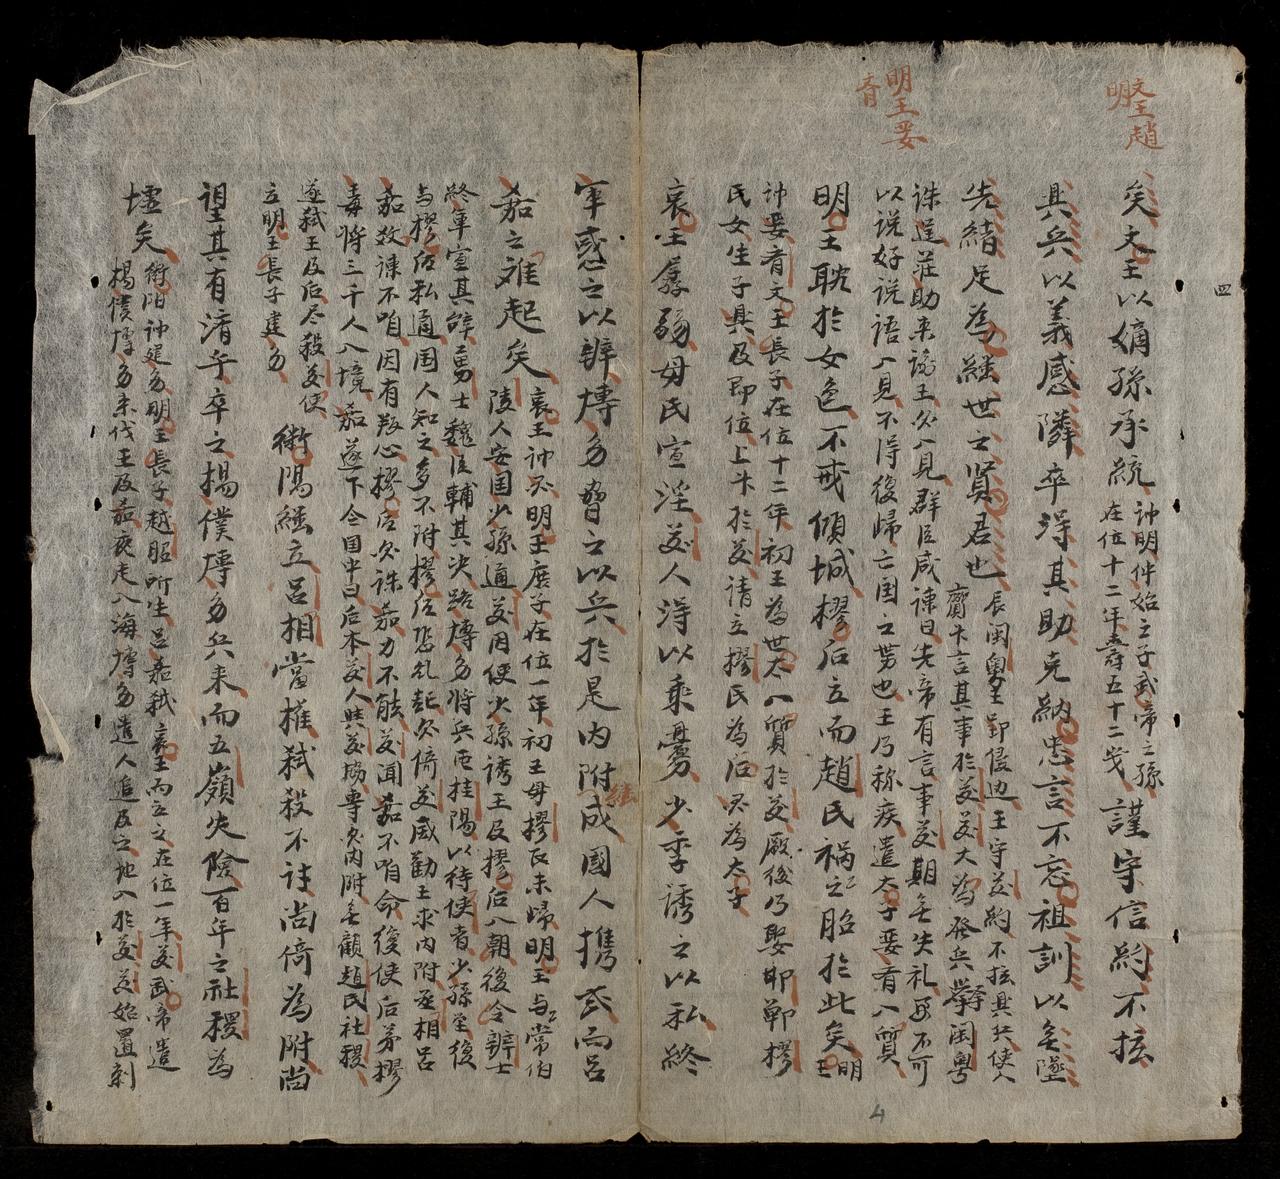 文王趙
明
明王妥
育
四
矣文王以嫡孫承統
神明仲始之子武帝之孫
在位十二年壽五十二岁
謹守信約不抗
其兵以義感隣卒得其助克納忠言不忘祖訓以無墜
先緒足為継世之賢君也
辰閩粤王郢侵边王守漢約不抗其兵使人
賫卞言其事於漢漢大為發兵擊閩粤
誅逞莊助来諭王欲入見群臣咸諫曰先帝有言事漢期無失礼要不可
以説好説語入見不得復歸亡国之势也王乃称疾遣太子嬰育入質
明王耽於女色不戒傾城樛后立而趙氏禍之昭於此矣
明
王
神嬰育文王長子在位十二年初王為世太入質於漢厥後乃娶邯鄲樛
氏女生子興及即位上卞於漢請立樛氏為后興為太子
哀王孱弱母氏宣淫漢人得以乘釁少季誘之以私終
軍惑之以辨博多脅之以兵於是内附成國人携貳而呂
嘉之难起矣
哀王神興明王庶子在位一年初王母樛氏未歸明王与常伯
陵人安国少孫通漢因使少孫誘王及樛后入朝後令辨士
終軍宣其辞勇士魏臣輔其决路博多將兵屯桂陽以待使者少孫至復
与樛后私通国人知之多不附樛后恐乱起欲倚漢威勸王求内附丞相呂
嘉效諫不咱因有叛心樛后欲誅嘉力不能漢聞嘉不咱命復使后弟樛
毒將三千人入境嘉遂下令国中曰后本漢人與漢協專欲内附無顧趙氏社稷
遂弑王及后尽殺漢使
立明王長子建多
衛陽継立呂相當權弑殺不討尚倚為附尚
望其有濟乎卒之揚僕博多兵来而五嶺失险百年之社稷為
墟矣
衛陽神建多明王長子越昭所生呂嘉弑哀王而立之在位一年漢武帝遣
揚僕博多来伐王及嘉夜走入海博多遣人追及之地入於漢漢始置刺